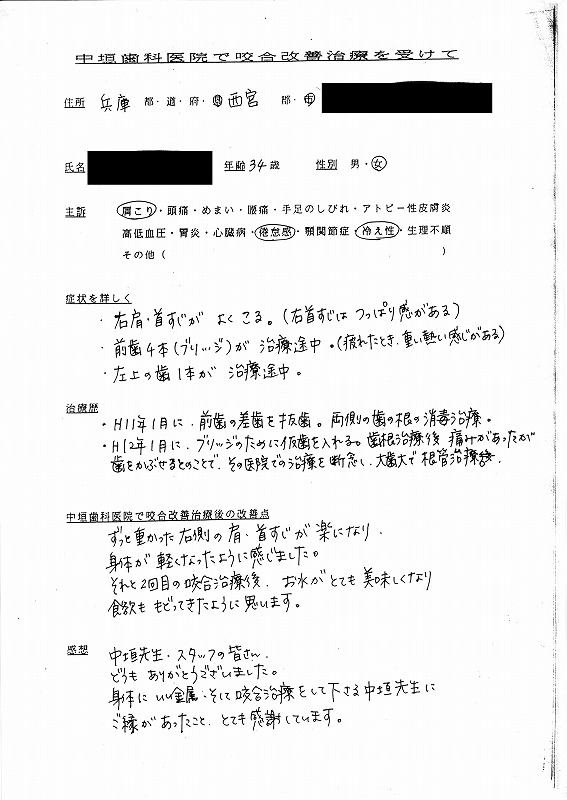 中垣歯科医院で咬合改善治療を受けて
住所 兵庫 都・道・府・県 西宮 郡・市
氏名 年齢 34歳 性別 男・女
主訴 肩こり・頭痛・めまい・腰痛・手足のしびれ・アトピー性皮膚炎
高低血圧・胃炎・心臓病・倦怠感・顎関節症・冷え性・生理不順
その他( )
症状を詳しく
・右肩・首すじが よくこる。(右首すじは つっぱり感がある)
・前歯4本(ブリッジ)が 治療途中。(疲れたとき、重い熱い感じがある)
・左上の歯1本が 治療途中。
治療歴
・H11年1月に、前歯の差歯を抜歯。両側の歯の根の消毒治療。
・H12年1月に、ブリッジのために仮歯を入れる。歯根治療後 痛みがあったが
歯をかぶせるとのことで、その医院での治療を断念し、大歯大で根管治療
中垣歯科医院で咬合改善治療後の改善点
ずっと重かった右側の肩・首すじが楽になり、
身体が軽くなったように感じました。
それと2回目の咬合治療後、お水がとても美味しくなり
食欲ももどってきたように思います。
感想 中垣先生・スタッフの皆さん、
どうもありがとうございました。
身体にいい金属・そして咬合治療をして下さる中垣先生に
ご縁があったこと、とても感謝しています。